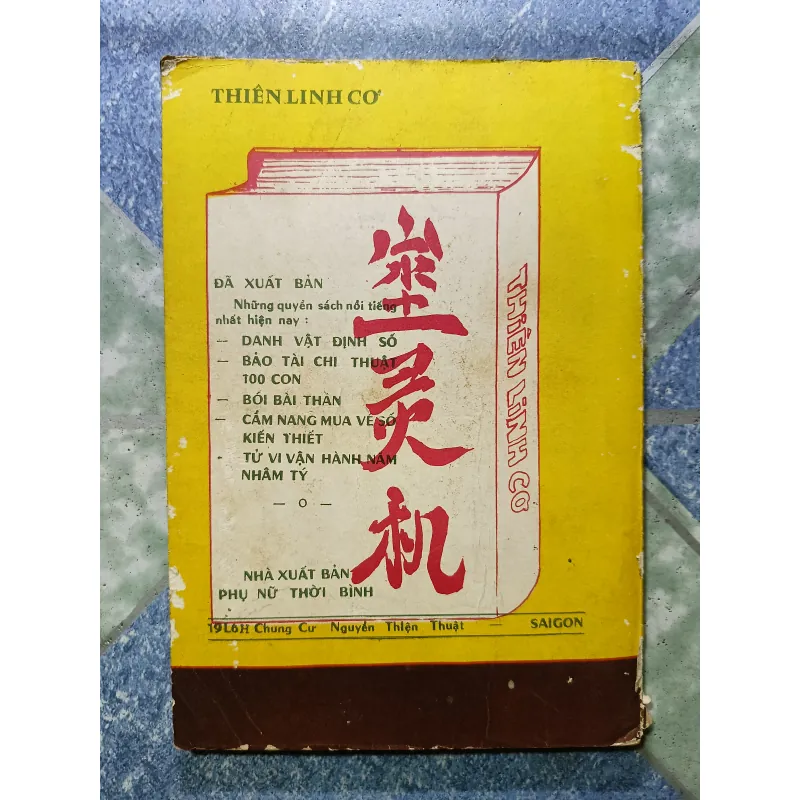 THIÊN LINH CƠ
ĐÃ XUẤT BẢN
Những quyển sách nổi tiếng
nhất hiện nay :
— DANH VẬT ĐỊNH SỐ
— BẢO TÀI CHI THUẬT
100 CON
— BÓI BÀI THẦN
— CẨM NANG MUA VÉ SỐ
KIẾN THIẾT
- TỬ VI VẬN HÀNH NĂM
NHÂM TÝ
— O —
NHÀ XUẤT BẢN
PHỤ NỮ THỜI BÌNH
19L6H Chung Cư Nguyễn Thiện Thuật — SAIGON
灵机
THIÊN LINH CƠ